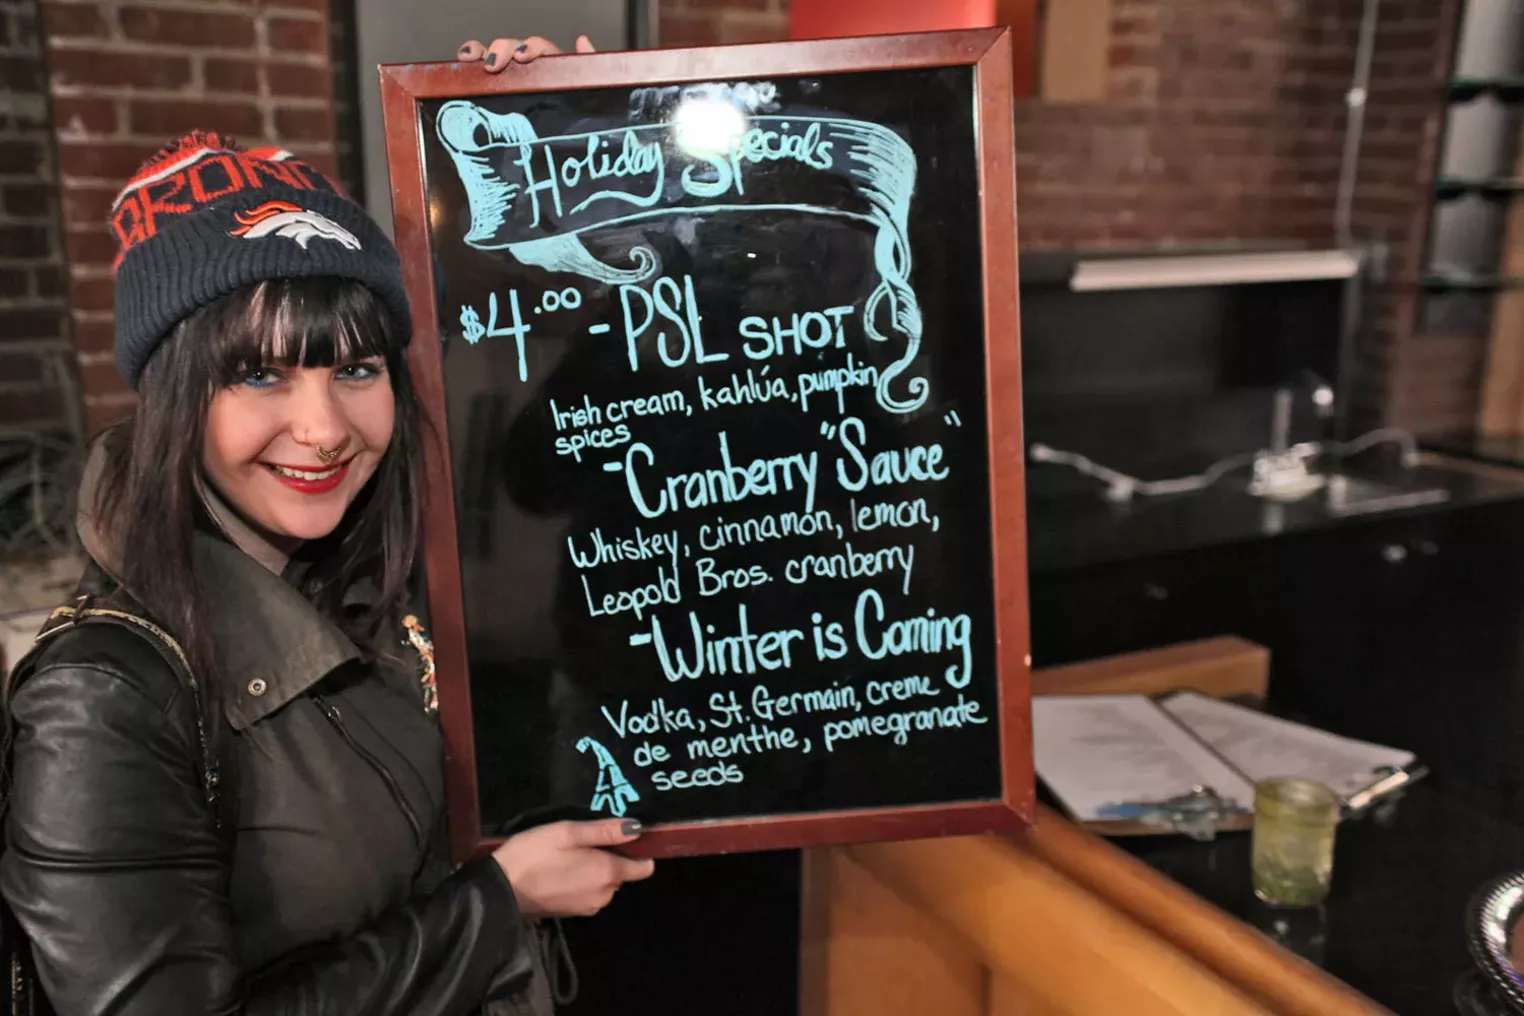 BRONC
Holiday Specials
$4.00 - PSL SHOT
Irish cream, kahlúa, pumpkin
spices
- Cranberry "Sauce"
Whiskey, cinnamon, lemon,
Leopold Bros. cranberry
- Winter is Coming
Vodka, St. Germain, creme
de menthe, pomegranate
seeds